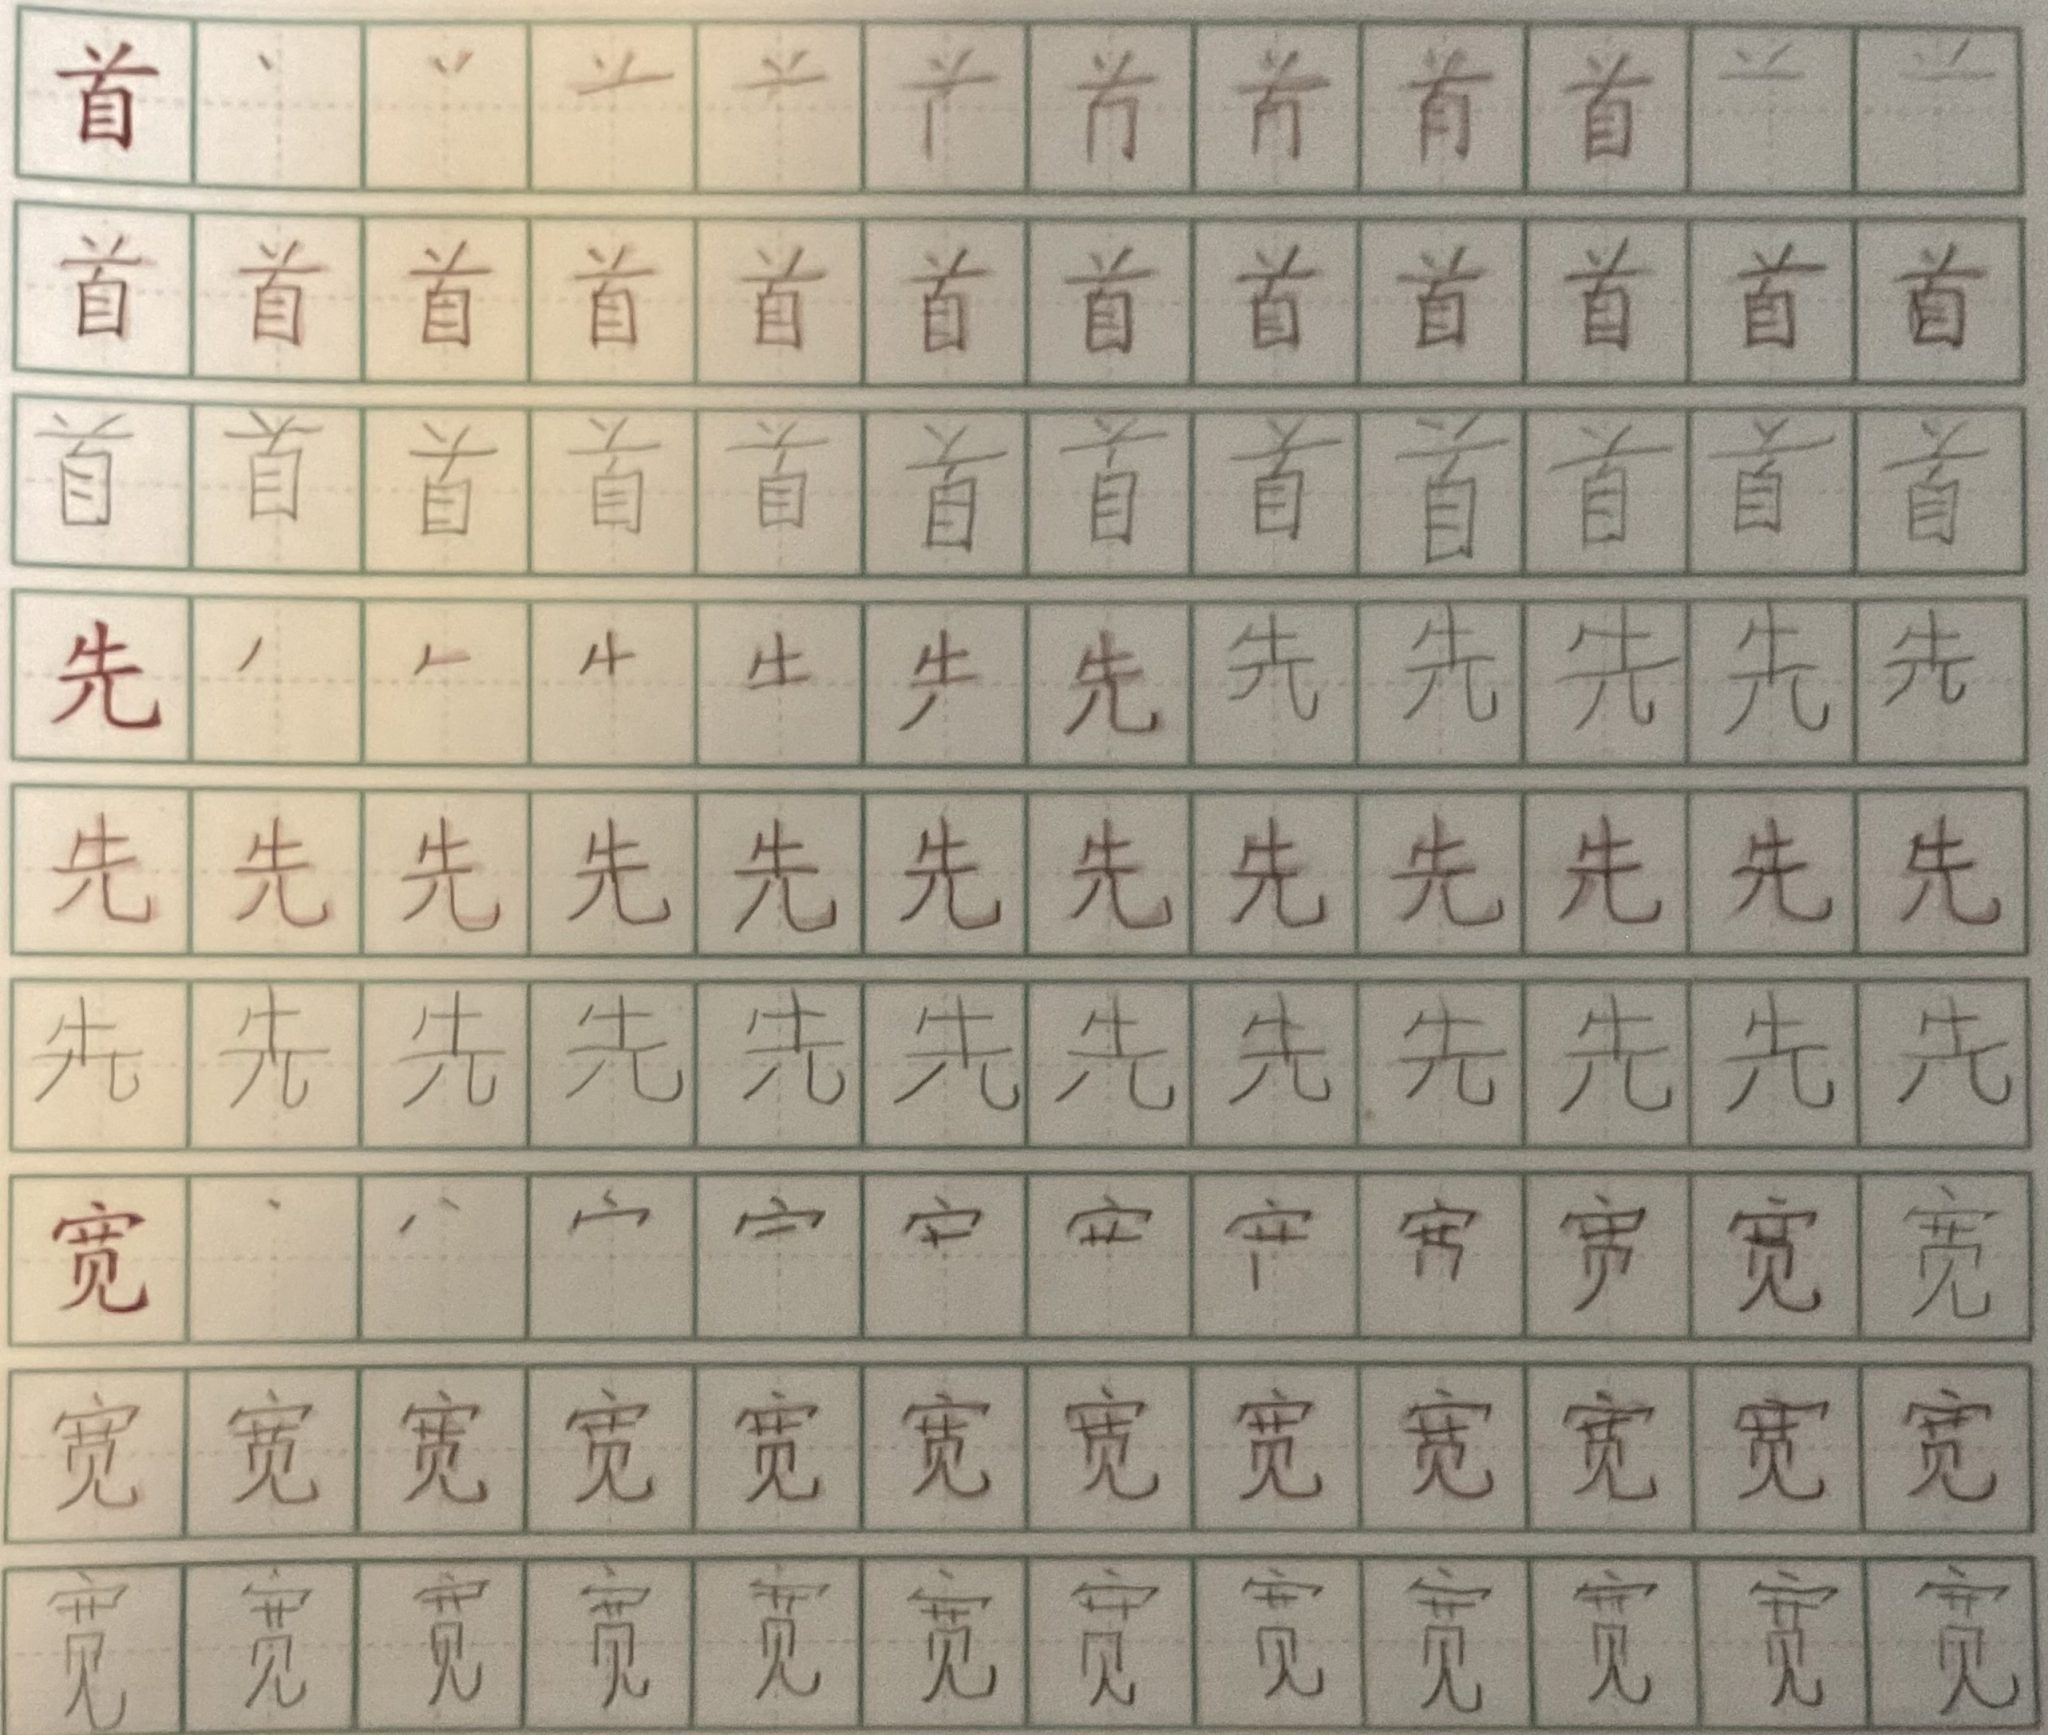 首 丶 丷 首 䒑
首 首 首 首 首 首 首 首 首 首 首 首
首 首 首 首 首 首 首 首 首 首 首 首
先 丿 𠂉 牛 先 先 先 先 先 先
先 先 先 先 先 先 先 先 先 先 先 先
先 先 先 先 先 先 先 先 先 先 先 先
宽 丶 宀 宽 宽
宽 宽 宽 宽 宽 宽 宽 宽 宽 宽 宽 宽
宽 宽 宽 宽 宽 宽 宽 宽 宽 宽 宽 宽